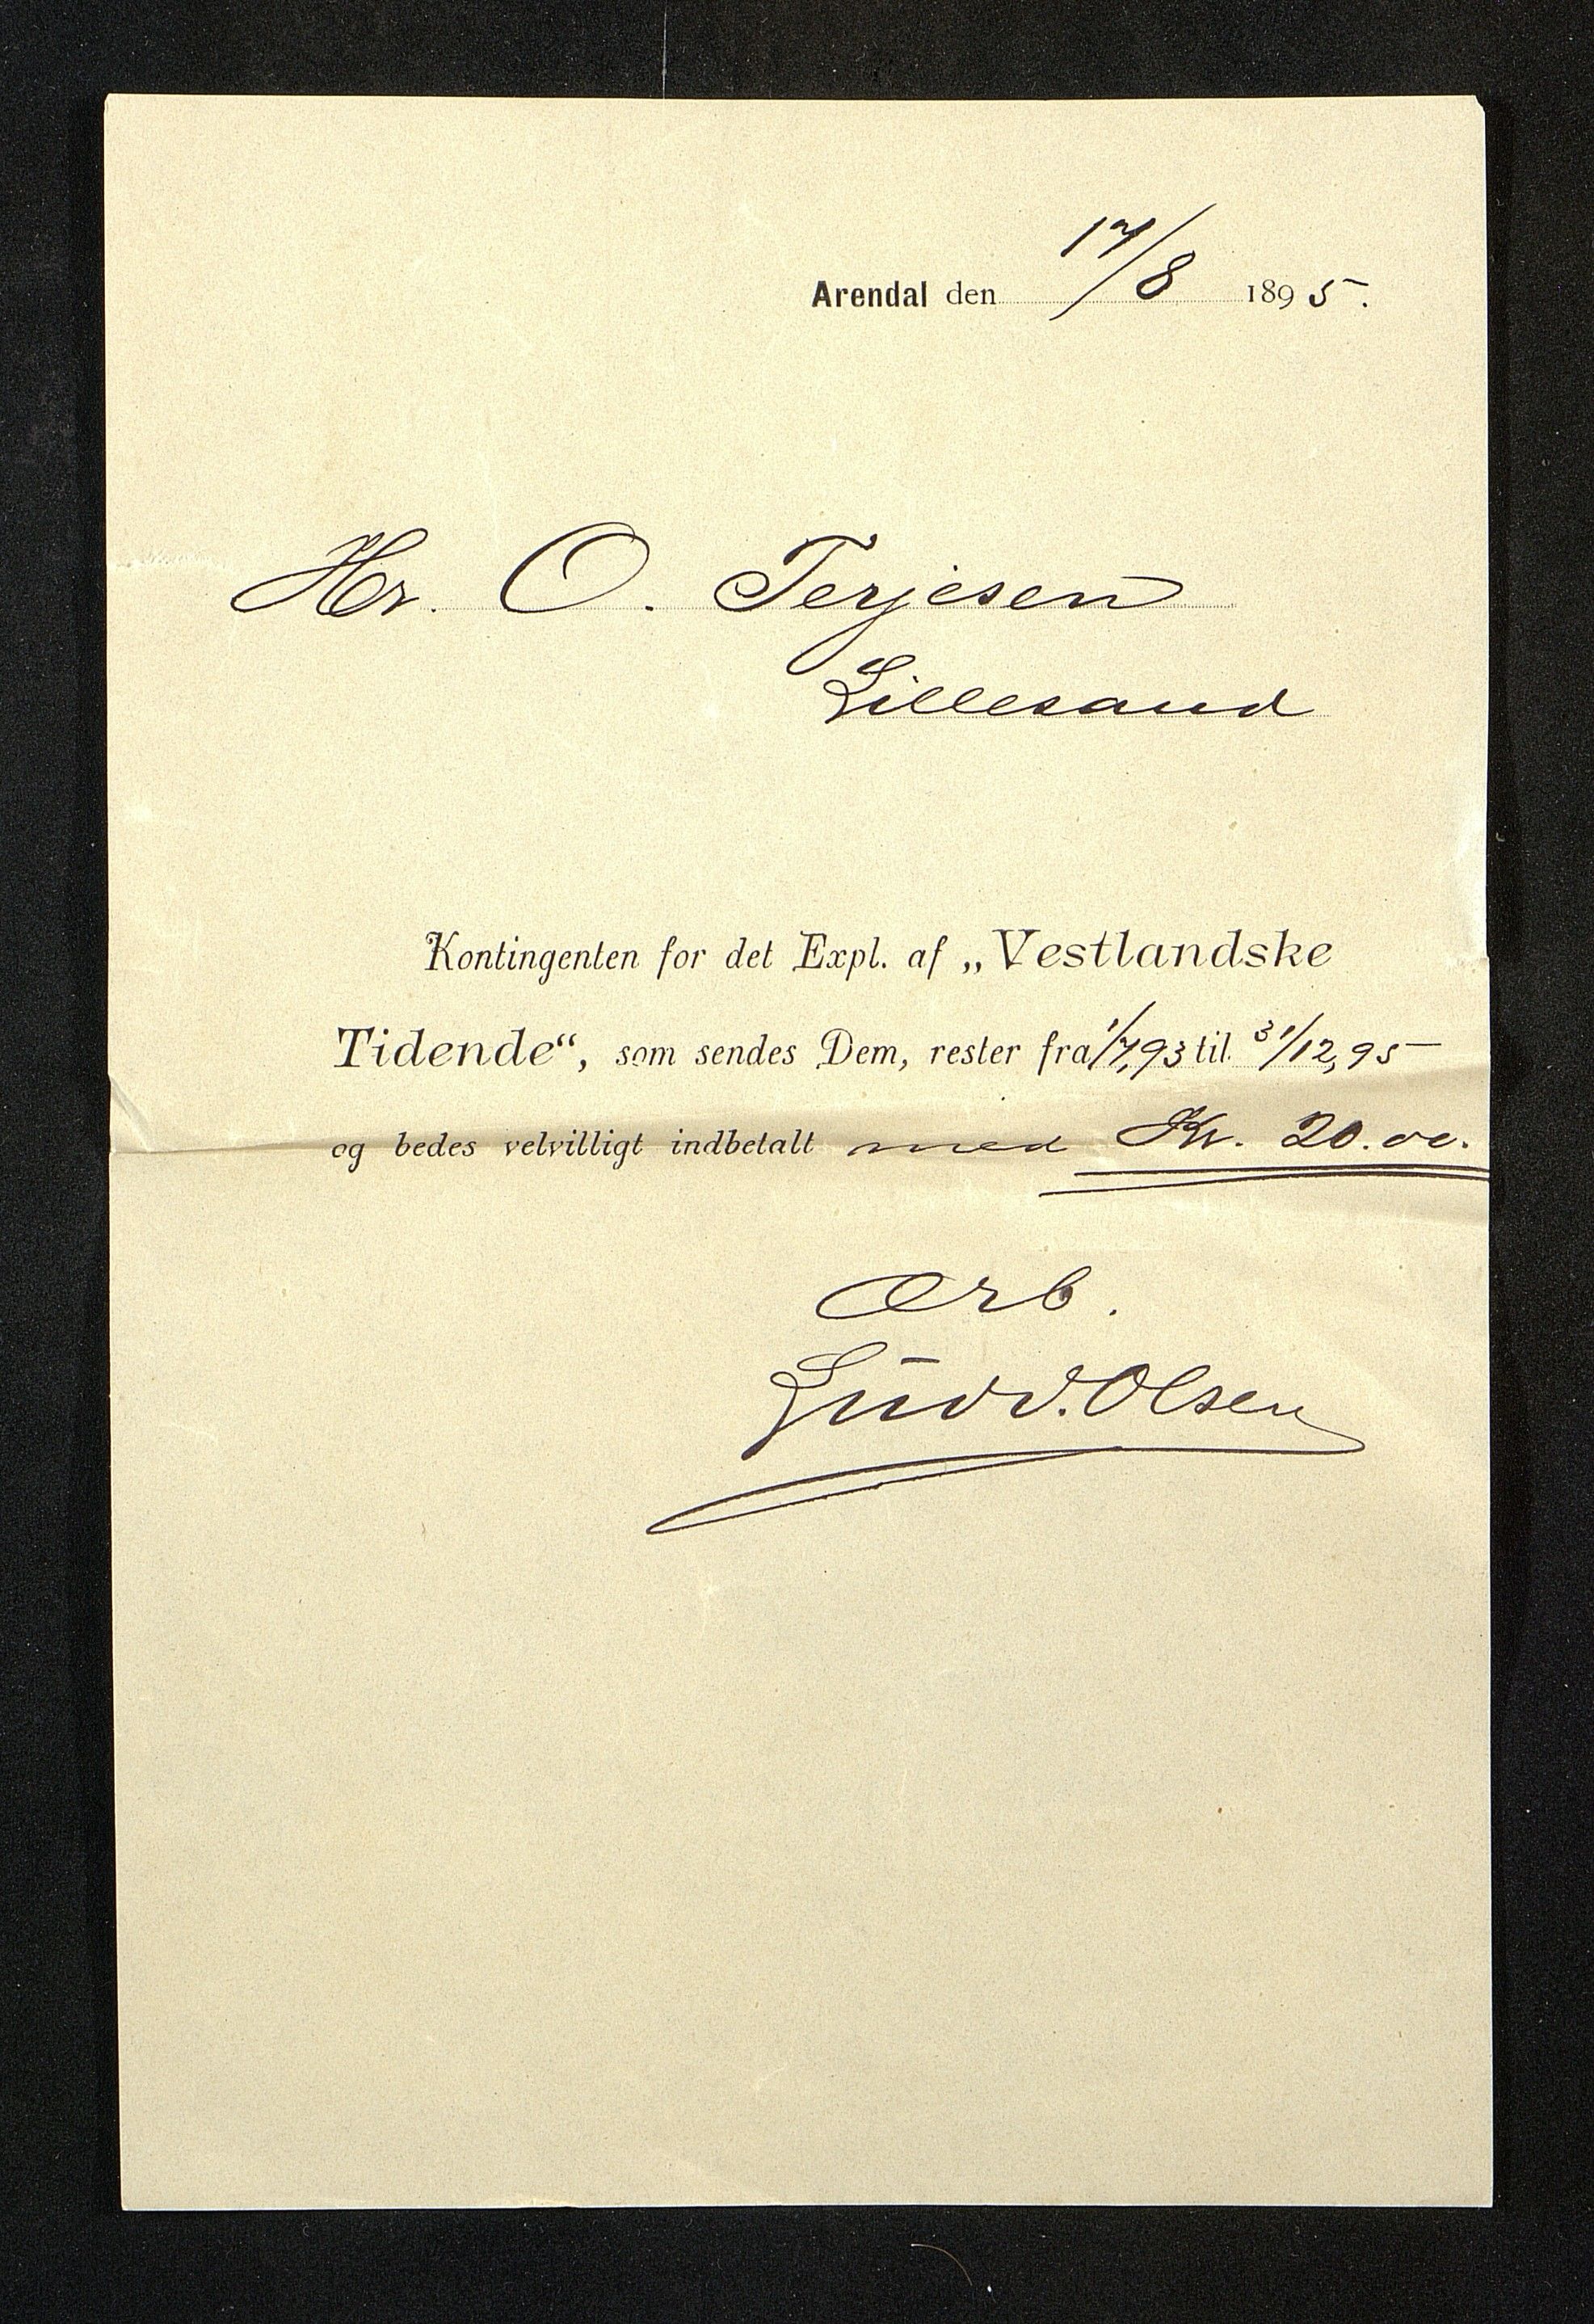 Arendal den 17/8 1895.
Hr. O. Terjesen
Lillesand
Kontingenten for det Expl. af „Vestlandske
Tidende“, som sendes Dem, rester fra 1/7,93 til 31/12,95
og bedes velvilligt indbetalt med Kr. 20.00.
Ærb.
Ludv. Olsen